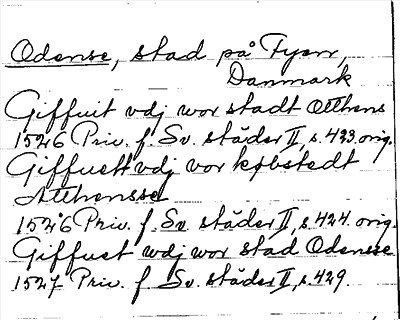 Odense, stad på Fyen,
Danmark
Giffuit vdj wor stadt Otthens
1526 Priv. f. Sv. städer II, s. 423. orig.
Giffuett vdj vor købstedt
Atthensse
1526 Priv. f. Sv. städer II, s. 424. orig.
Giffuet wdj wor stad Odensze
1527 Priv. f. Sv. städer II, s. 429.